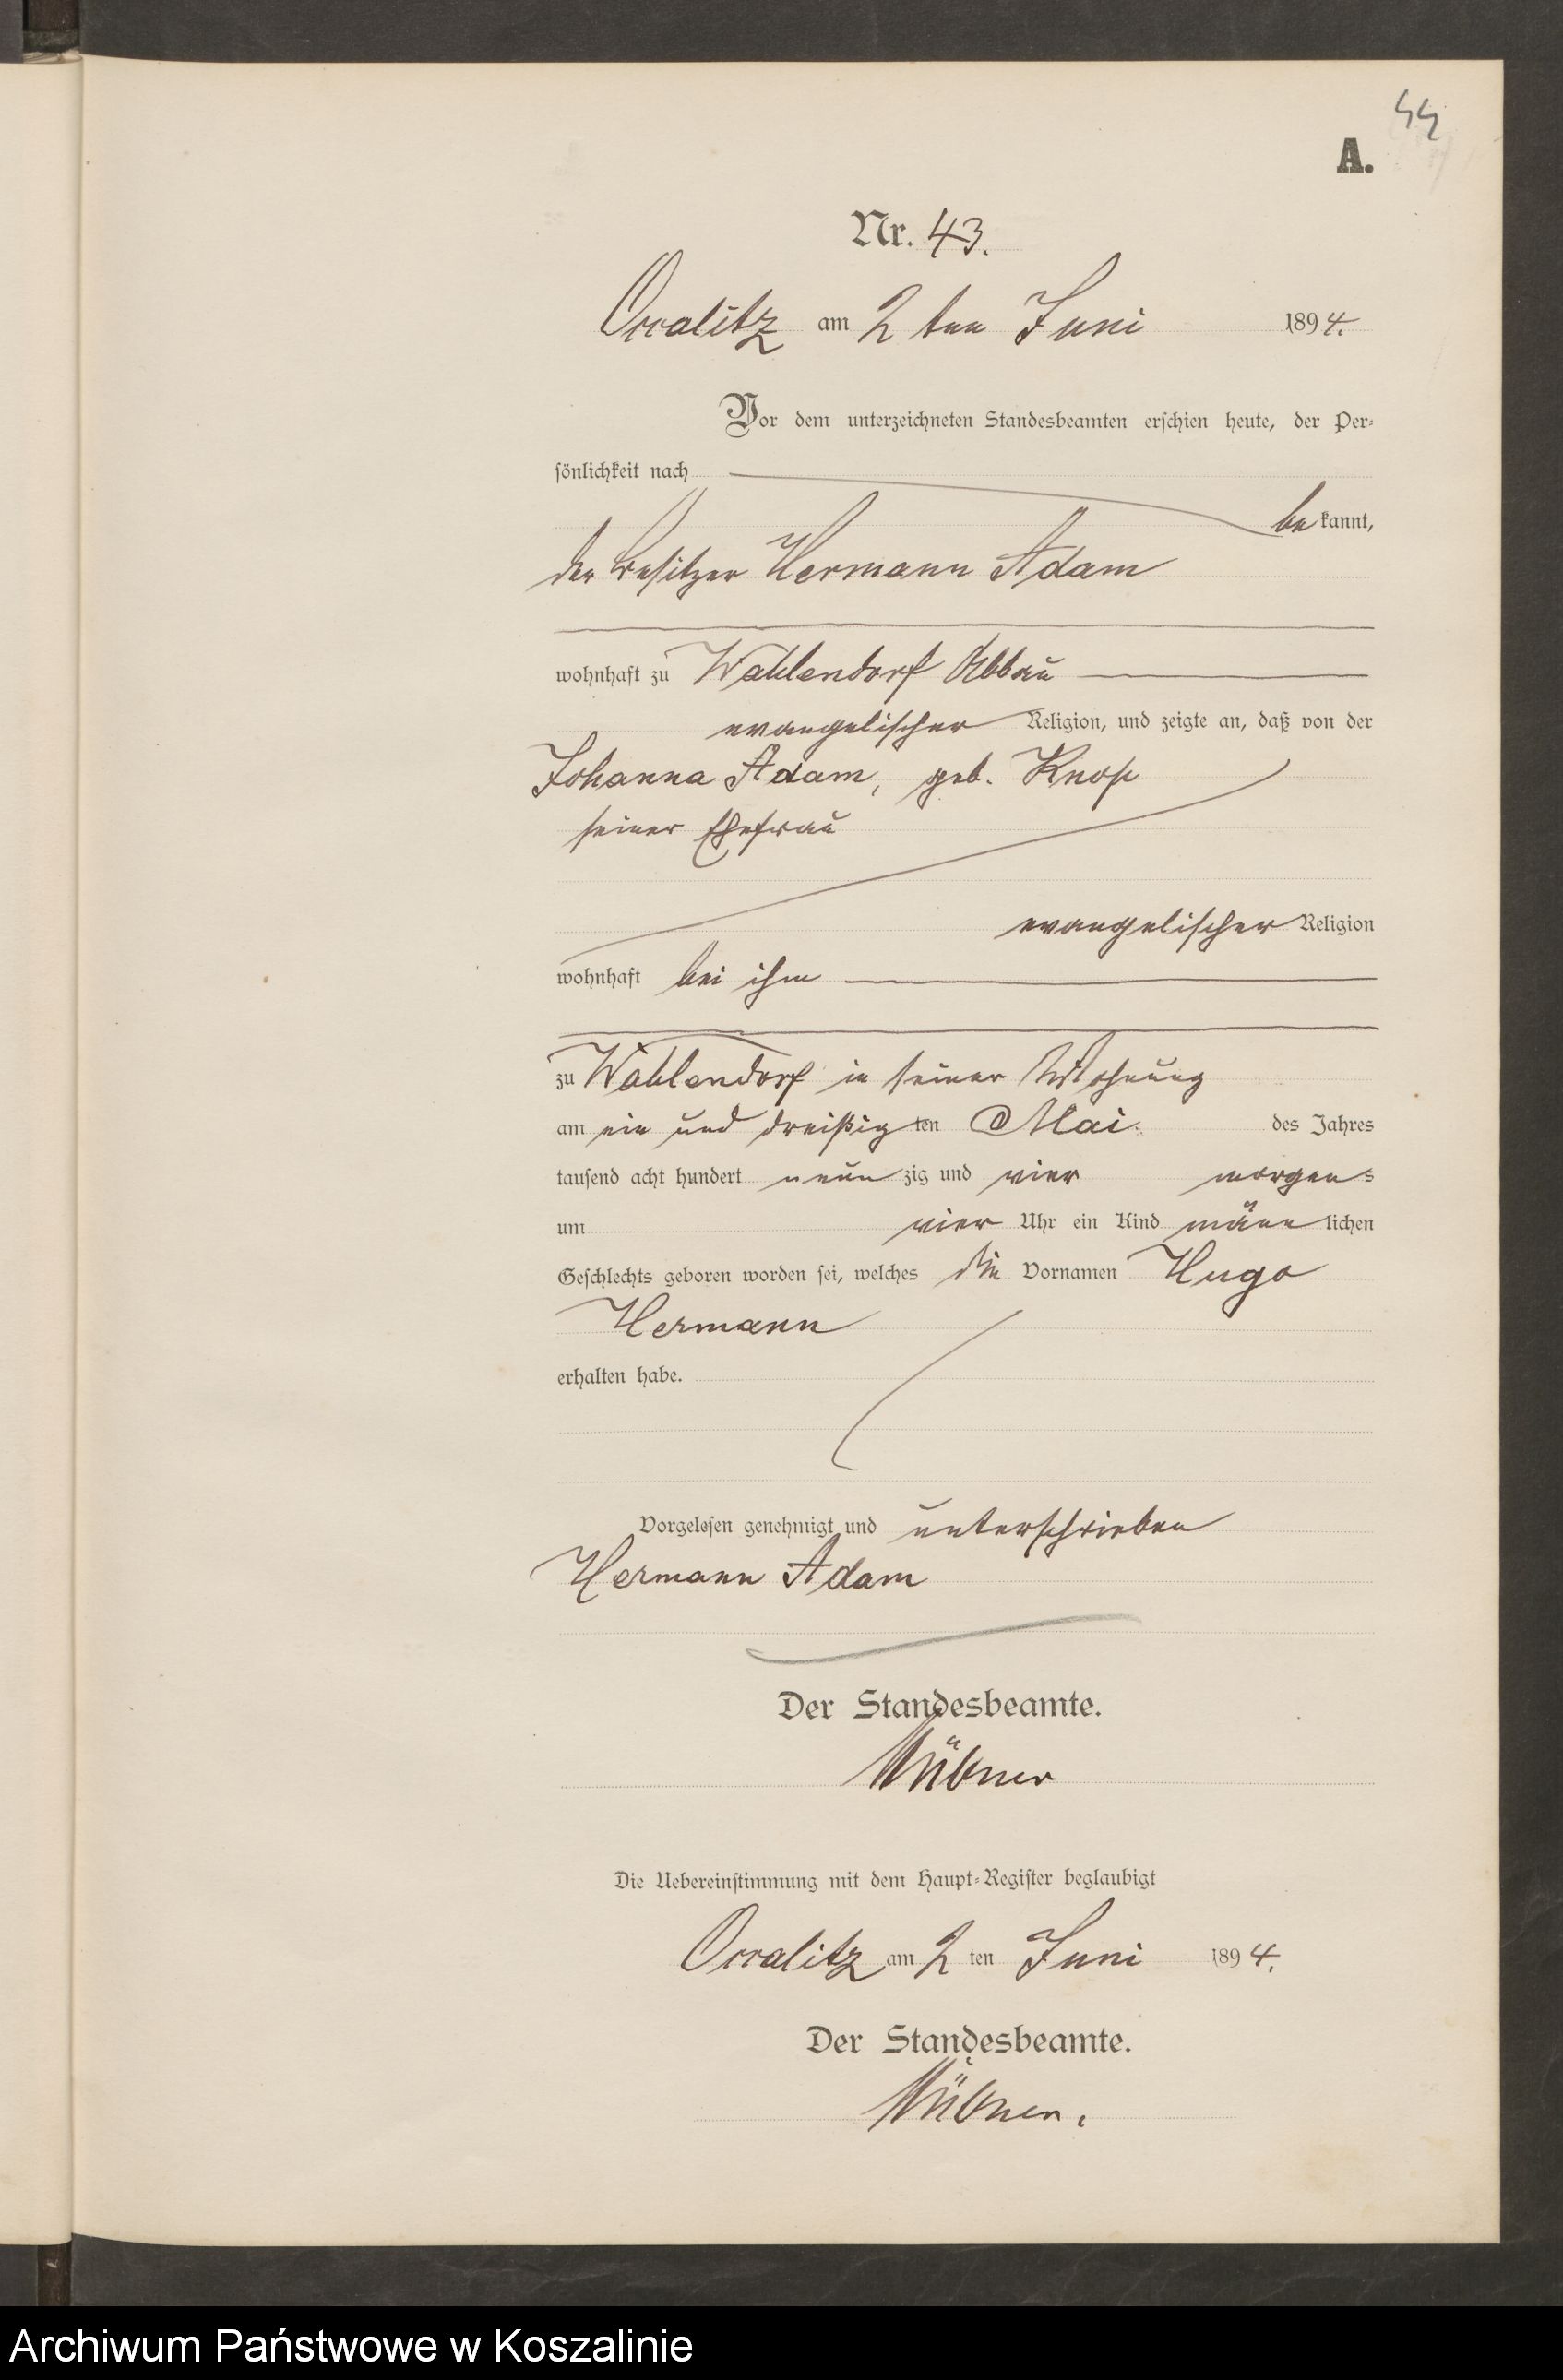 44
A.
Nr. 43.
am 2 ten Juni 1894.
Vor dem unterzeichneten Standesbeamten erschien heute, der Per-
sönlichkeit nach
bekannt,
der Besitzer Hermann Adam
wohnhaft zu Wahlendorf Abbau
evangelischer Religion, und zeigte an, daß von der
Johanna Adam, geb. Knop
seiner Ehefrau
evangelischer Religion
wohnhaft bei ihm
zu Wahlendorf in seiner Wohnung
am ein und dreißigten Mai des Jahres
tausend acht hundert neunzig und vier morgens
um vier Uhr ein Kind männlichen
Geschlechts geboren worden sei, welches die Vornamen Hugo
Hermann
erhalten habe.
Vorgelesen genehmigt und unterschrieben
Hermann Adam
Der Standesbeamte.
Die Uebereinstimmung mit dem Haupt-Register beglaubigt
am 2 ten Juni 1894.
Der Standesbeamte.
Archiwum Państwowe w Koszalinie